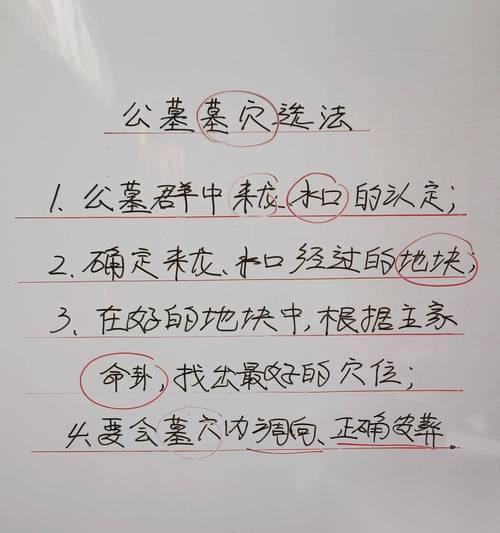 公墓墓穴选法
1、公墓群中来龙、水口的认定;
2、确定来龙、水口经过的地块;
3、在好的地块中,根据主家
命卦,找出最好的穴位;
4、要会墓穴内调向、正确安葬.